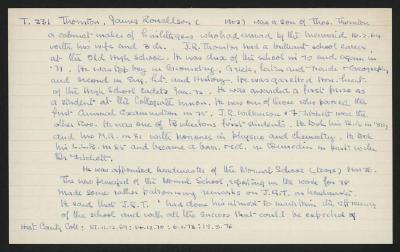 T. 231 Thornton, James Ronaldson ( 1903) was a son of Thos. Thornton
a cabinet maker of Linlithgow who had arrived by the Mermaid 10.2.64
with his wife and 3 ds. J.R. Thornton had a brilliant school career
at the Old High School. He was dux of the school in '70 and again in
'71. He was top boy in Geometry, Greek, Latin and French &
and second in Eng. Lit. and History. He was gazetted Hon. Lieut.
of the High School Cadets Jan. 72. He was awarded a first prize as
a student at the Collegiate Union. He was one of those who passed the
first annual examination in 72. J.R. Wilkinson & F. Fitchett were the
other two. He was one of Bickertons first students. He took his B.A. in '80
and his M.A. in 81 with honours in physics and chemistry. He took
his L.L.B. in 85 and became a barr. & sol. in Dunedin in part. with
Fitchett.
He was appointed headmaster of the Normal School
The new principal of the Normal School, reporting on the work for 78
made some rather patronising remarks on J.R.T. as headmaster.
He said that J.R.T. "had done his utmost to maintain the efficiency
of the school and with all the success that could be expected of
Hist. Canty Coll; 21.11.69; 24.12.70; 6.1.72; 19.3.76